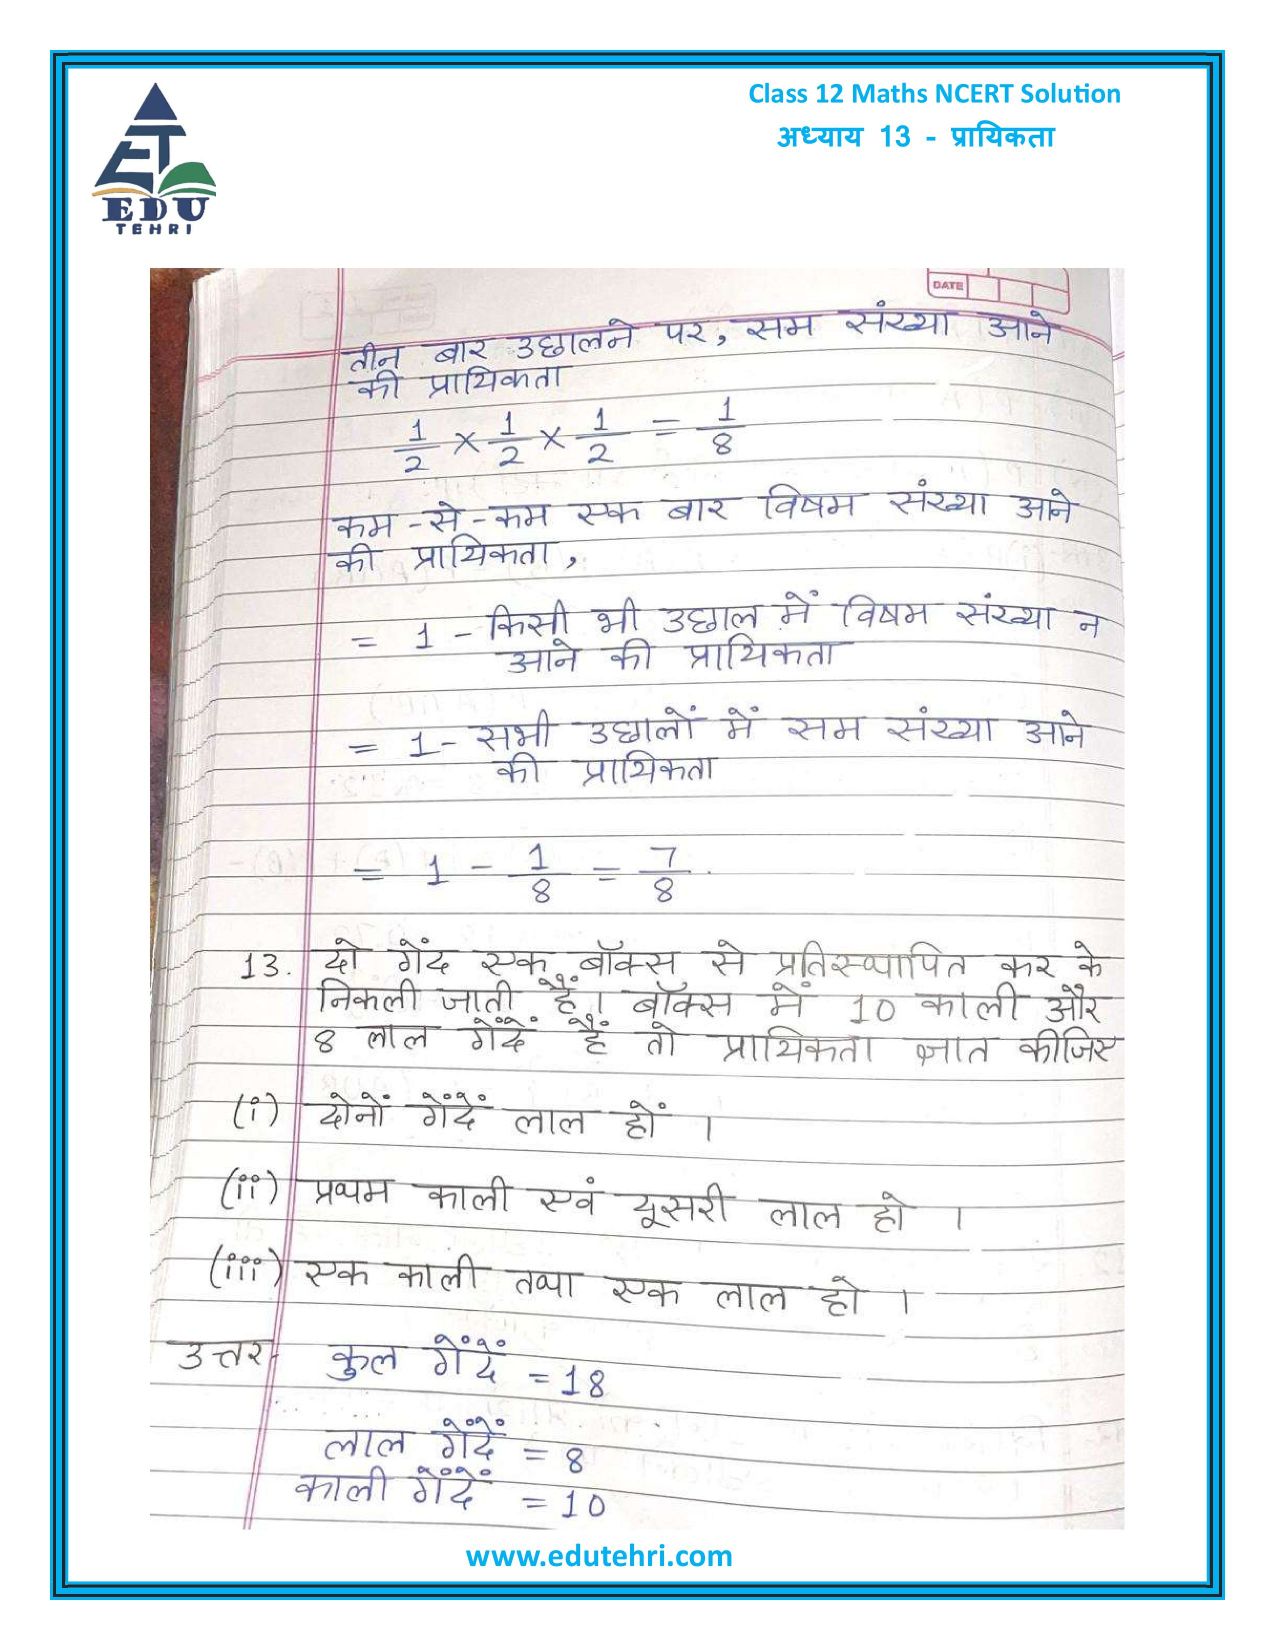 Class 12 Maths NCERT Solution
अध्याय 13 - प्रायिकता
EDU
TEHRI
DATE
तीन बार उछालने पर, सम संख्या आने
की प्रायिकता
1/2 × 1/2 × 1/2 = 1/8
कम-से-कम एक बार विषम संख्या आने
की प्रायिकता,
= 1 - किसी भी उछाल में विषम संख्या न
आने की प्रायिकता
= 1 - सभी उछालों में सम संख्या आने
की प्रायिकता
= 1 - 1/8 = 7/8.
13. दो गेंद एक बॉक्स से प्रतिस्थापित कर के
निकली जाती हैं। बॉक्स में 10 काली और
8 लाल गेंदें हैं तो प्रायिकता ज्ञात कीजिए
(i) दोनों गेंदें लाल हों ।
(ii) प्रथम काली एवं दूसरी लाल हो ।
(iii) एक काली तथा एक लाल हो ।
उत्तर- कुल गेंदें = 18
लाल गेंदें = 8
काली गेंदें = 10
www.edutehri.com